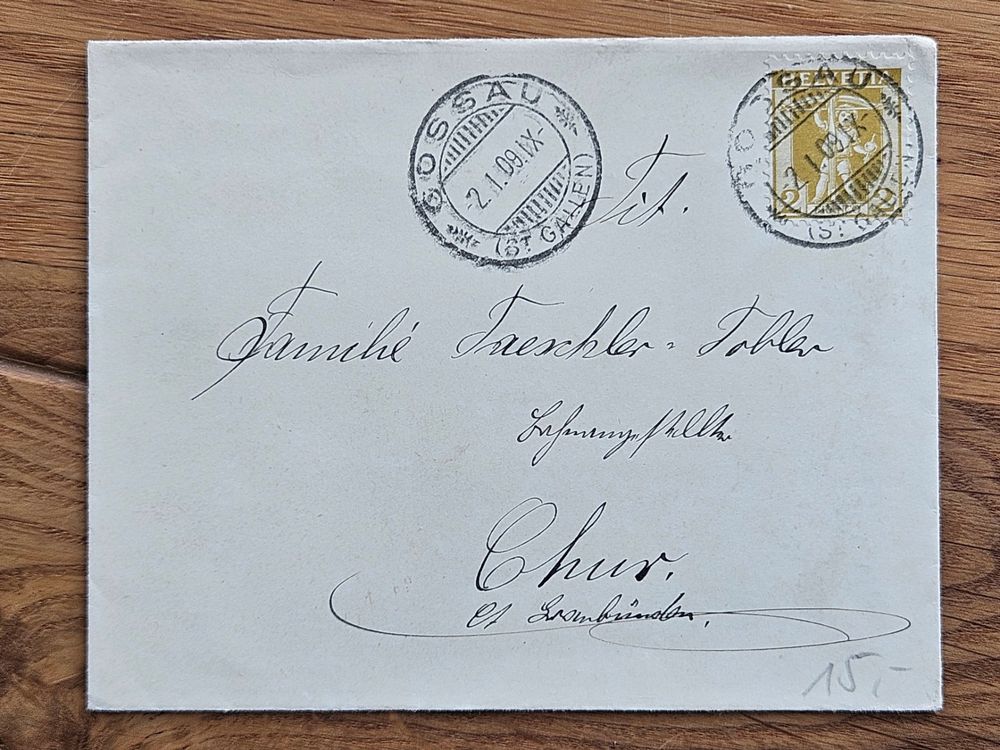 GOSSAU
2.1.09.IX-
(ST GALLEN)
HELVETIA
2 2
2.1.09.IX-
Tit.
Familie Taeschler-Tobler
Bahnangestellter
Chur.
Ct Graubünden.
15,-